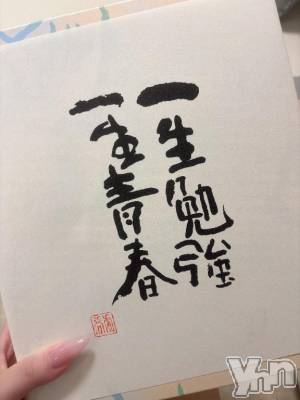 一生勉強
一生青春